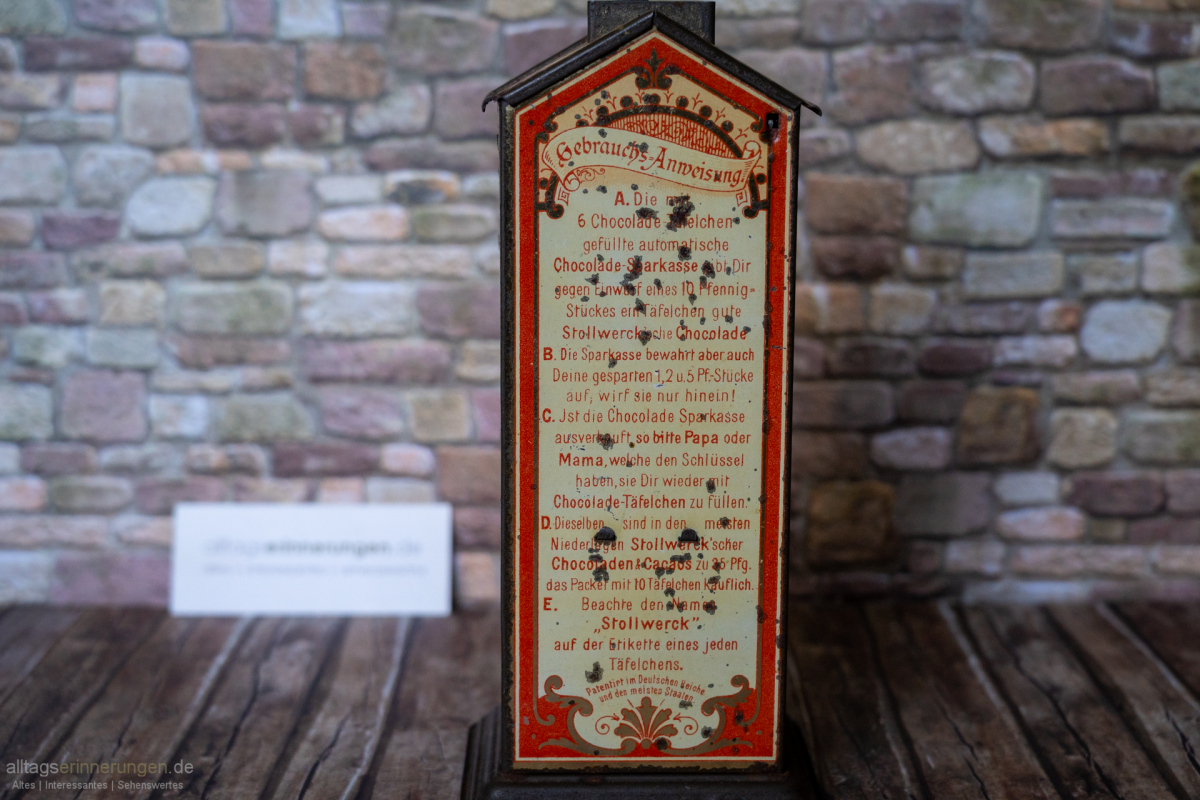 Gebrauchs-Anweisung.
A. Die mit
6 Chocolade-Täfelchen
gefüllte automatische
Chocolade-Sparkasse gibt Dir
gegen Einwurf eines 10 Pfennig=
Stückes ein Täfelchen gute
Stollwerck'sche Chocolade
B. Die Sparkasse bewahrt aber auch
Deine gesparten 1,2 u. 5 Pf.-Stücke
auf; wirf sie nur hinein!
C. Jst die Chocolade Sparkasse
ausverkauft, so bitte Papa oder
Mama, welche den Schlüssel
haben, sie Dir wieder mit
Chocolade-Täfelchen zu füllen.
D. Dieselben sind in den meisten
Niederlagen Stollwerck'scher
Chocoladen & Cacaos zu 25 Pfg.
das Packet mit 10 Täfelchen käuflich.
E. Beachte den Namen
„Stollwerck"
auf der Etikette eines jeden
Täfelchens.
Patentirt im Deutschen Reiche
und den meisten Staaten
alltagserinnerungen.de
alltagserinnerungen.de
Altes | Interessantes | Sehenswertes